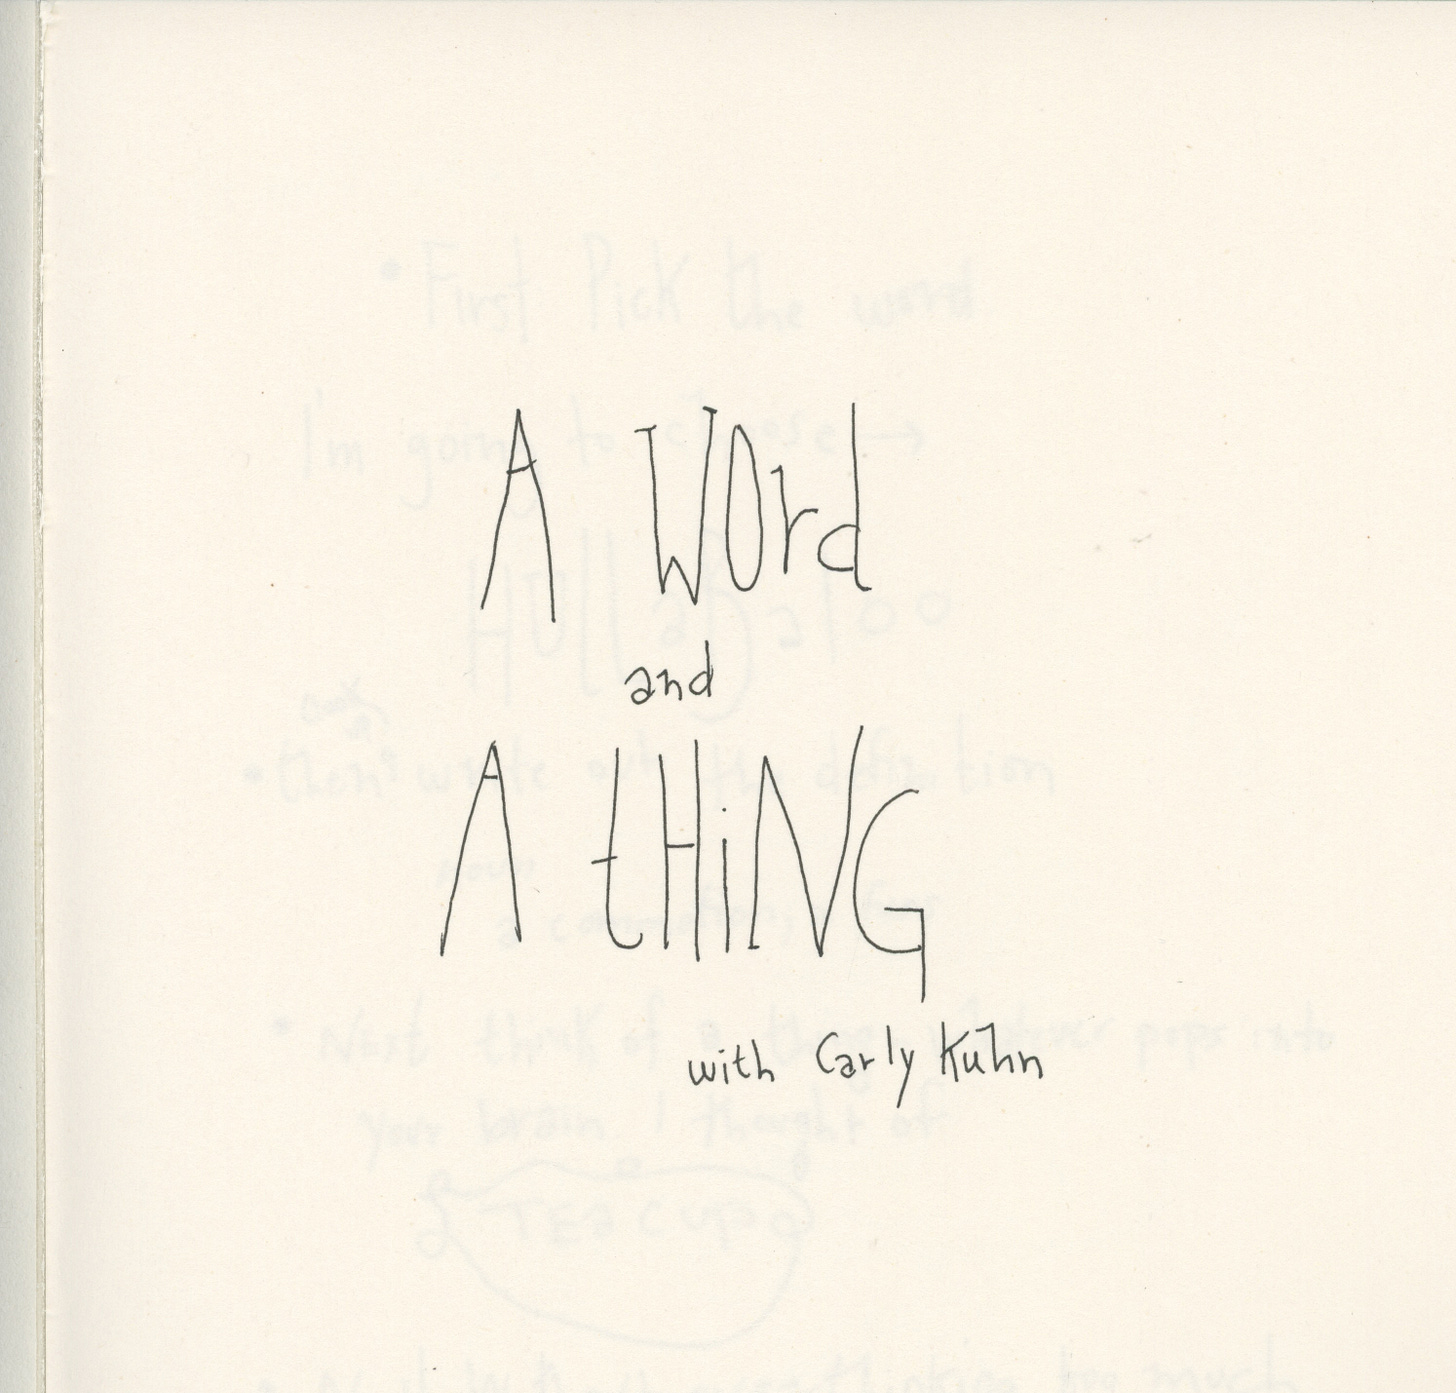 A Word
and
A tHiNG
with Carly Kuhn
• First Pick the word
I'm going to choose →
HUllabaloo
• then write out the definition
noun
a commotion, a fuss
• Next think of a thing, whatever pops into
your brain I thought of
TEacup